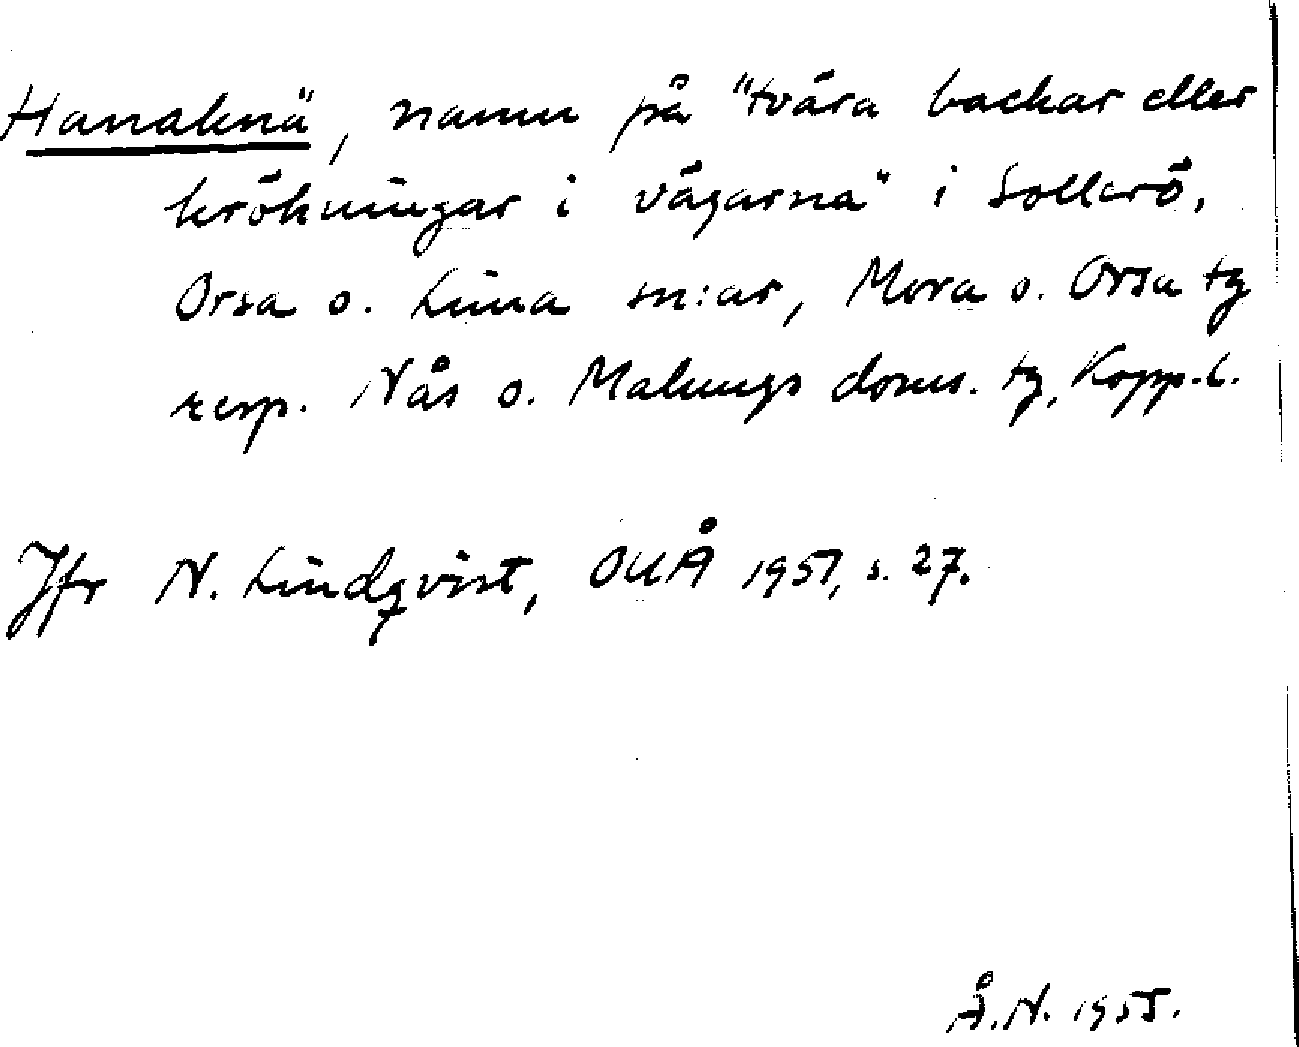 Hanaknä, namn på "tvära backar eller
krökningar i vägarna" i Sollerö,
Orsa o. Lima sn:ar, Mora o. Orsa tg
resp. Nås o. Malungs doms. tg, Kopp.l.
Jfr N. Lindqvist, OUÅ 1951, s. 27.
Å.N. 1955.